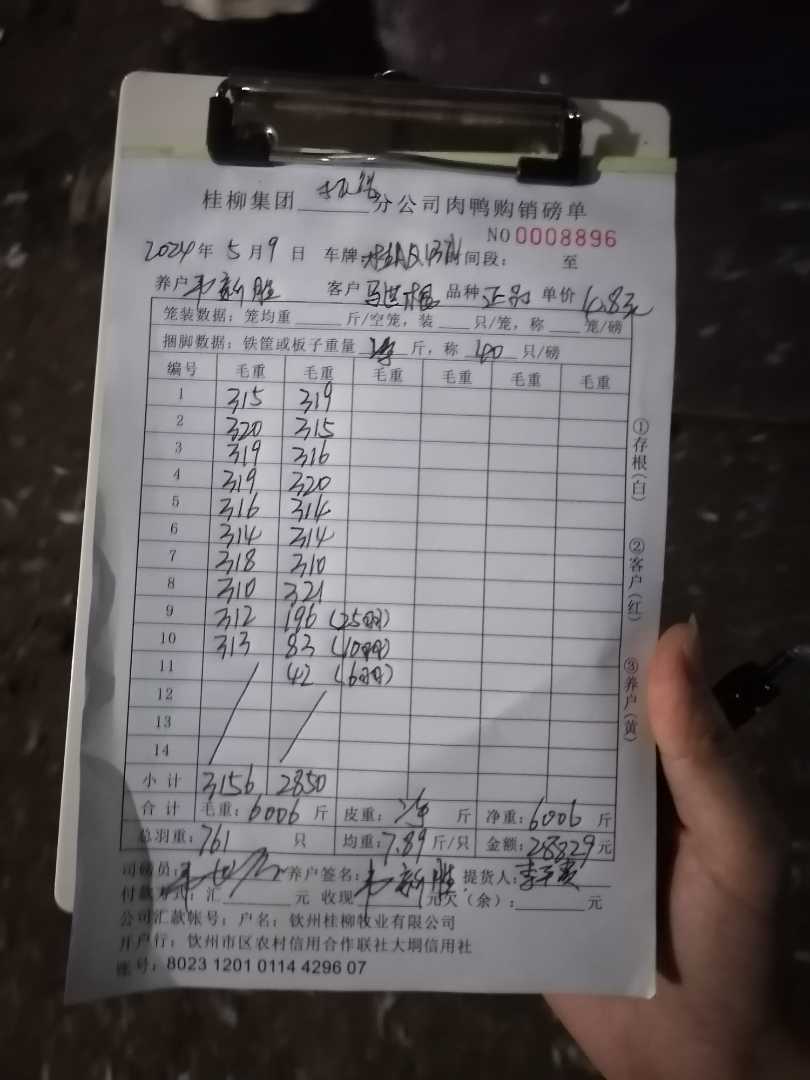 桂柳集团 分公司肉鸭购销磅单
NO 0008896
2024年 5月9日 车牌 时间段： 至
养户 韦新胜 客户 马世 品种 正 单价 4.8元
笼装数据：笼均重 斤/空笼，装 只/笼，称 笼/磅
捆脚数据：铁筐或板子重量 净 斤，称 40 只/磅
编号 毛重 毛重 毛重 毛重 毛重 毛重
1 315 319
2 320 315
3 319 316
4 319 320
5 316 314
6 314 314
7 318 310
8 310 321
9 312 196 (25羽)
10 313 83 (10羽)
11 42 (6羽)
12
13
14
小计 3156 2850
合计 毛重：6006 斤 皮重：净 斤 净重：6006 斤
总羽重：761 只 均重：7.89 斤/只 金额：28829元
司磅员： 养户签名：韦新胜 提货人：李
付款方式：汇 元 收现 元欠（余）： 元
公司汇款帐号：户名：钦州桂柳牧业有限公司
开户行：钦州市区农村信用合作联社大垌信用社
账号：8023 1201 0114 4296 07
①存根（白）
②客户（红）
③养户（黄）